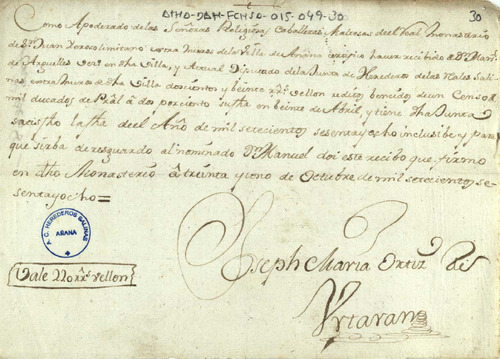 ATHO-DAH-FCHSO-015-049-30
30
Como Apoderado de las Señoras Religiosas Caballeras Maltesas de el Real Monasterio
de Sn Juan extra Muros de la Villa de Añana certifico haver recibido de Dn Manl
de Arguelles vezo en dha Villa, y Actual Diputado de la Junta de Herederos de las Rales Salinas
extra Muros de dha Villa doscientos y beinte rrs vellon reditos bencidos de un Censo
mil ducados de Pral à dos por ciento en beinte de Abril, y tiene dha Junta
la de el Año de mil setecientos sesenta y ocho inclusibe y para
que sirba de resguardo al nominado Dn Manuel doi este recibo que firmo
en dho Monasterio à treinta y uno de Octubre de mil setecientos se-
senta y ocho =
A.C. HEREDEROS SALINAS
AÑANA
Vale rrs vellon
Joseph Maria Ortiz de
Urtaran